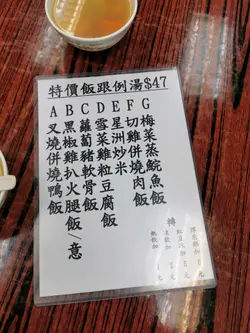 特價飯跟例湯$47
A 叉燒燒鴨飯
B 黑椒雞扒火腿飯/意
C 蘿蔔豬軟骨飯
D 雪菜雞粒豆腐飯
E 星洲炒米
F 切雞併燒肉飯
G 梅菜蒸鯇魚飯
轉